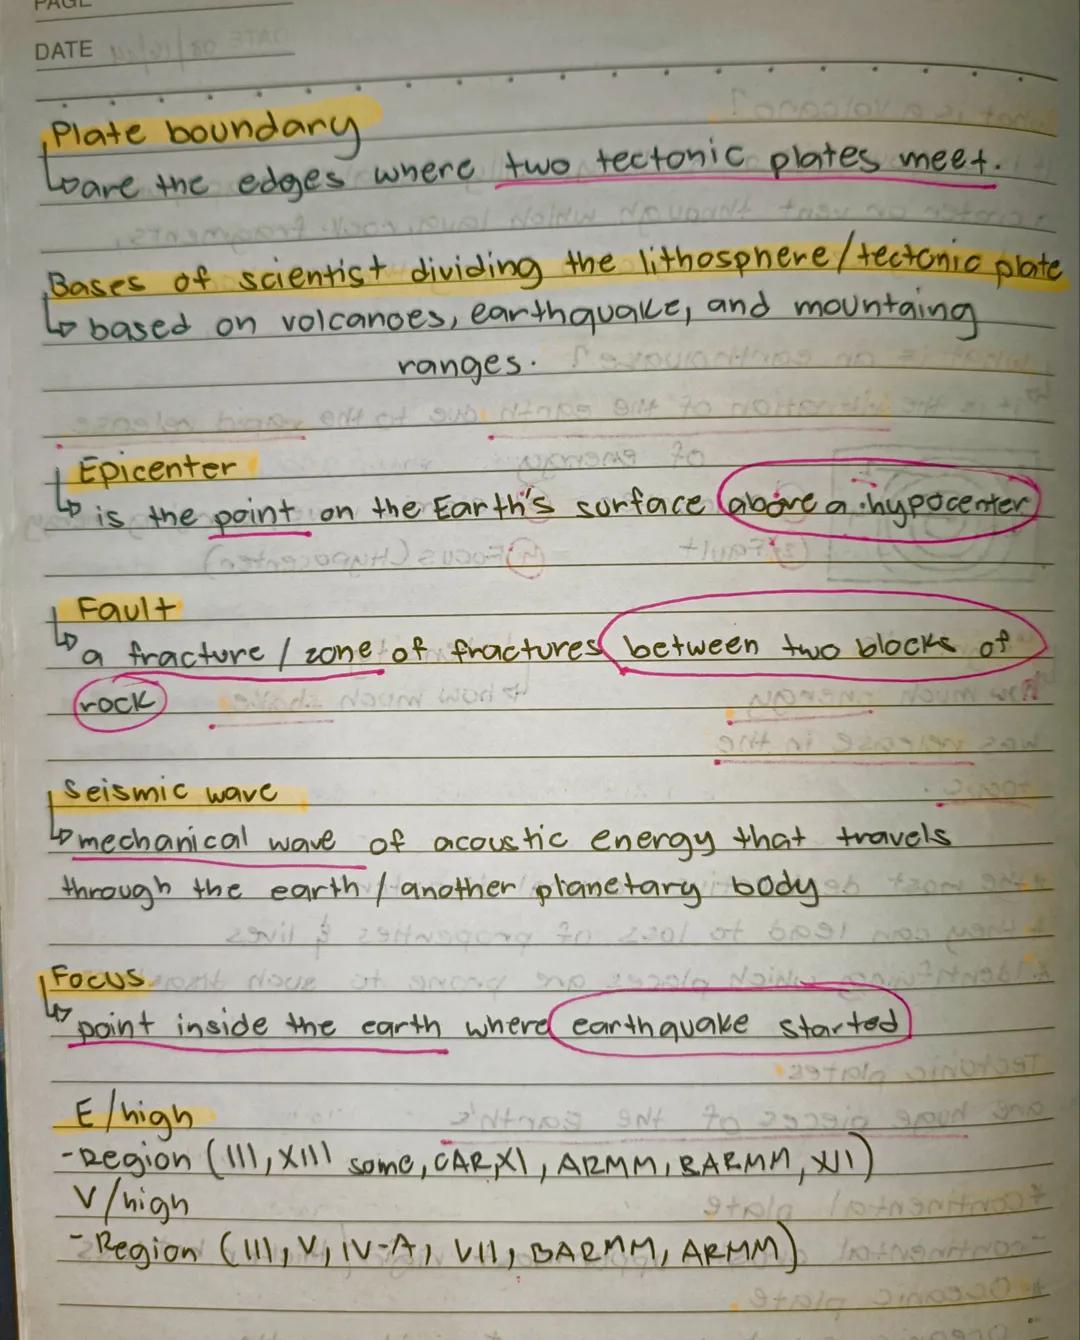 PAGE
DATE
Plate boundary
↳ are the edges where two tectonic plates meet.
Bases of scientist dividing the lithosphere/tectonic plate
↳ based on volcanoes, earthquake, and mountaing
ranges.
Epicenter
↳ is the point on the Earth's surface above a hypocenter
Fault
↳ a fracture / zone of fractures between two blocks of
rock
Seismic wave
↳ mechanical wave of acoustic energy that travels
through the earth / another planetary body
Focus
↳ point inside the earth where earthquake started
E/high
- Region (III, XIII some, CAR, XI, ARMM, BARMM, XII)
V/high
- Region (III, V, IV-A, VII, BARMM, ARMM)